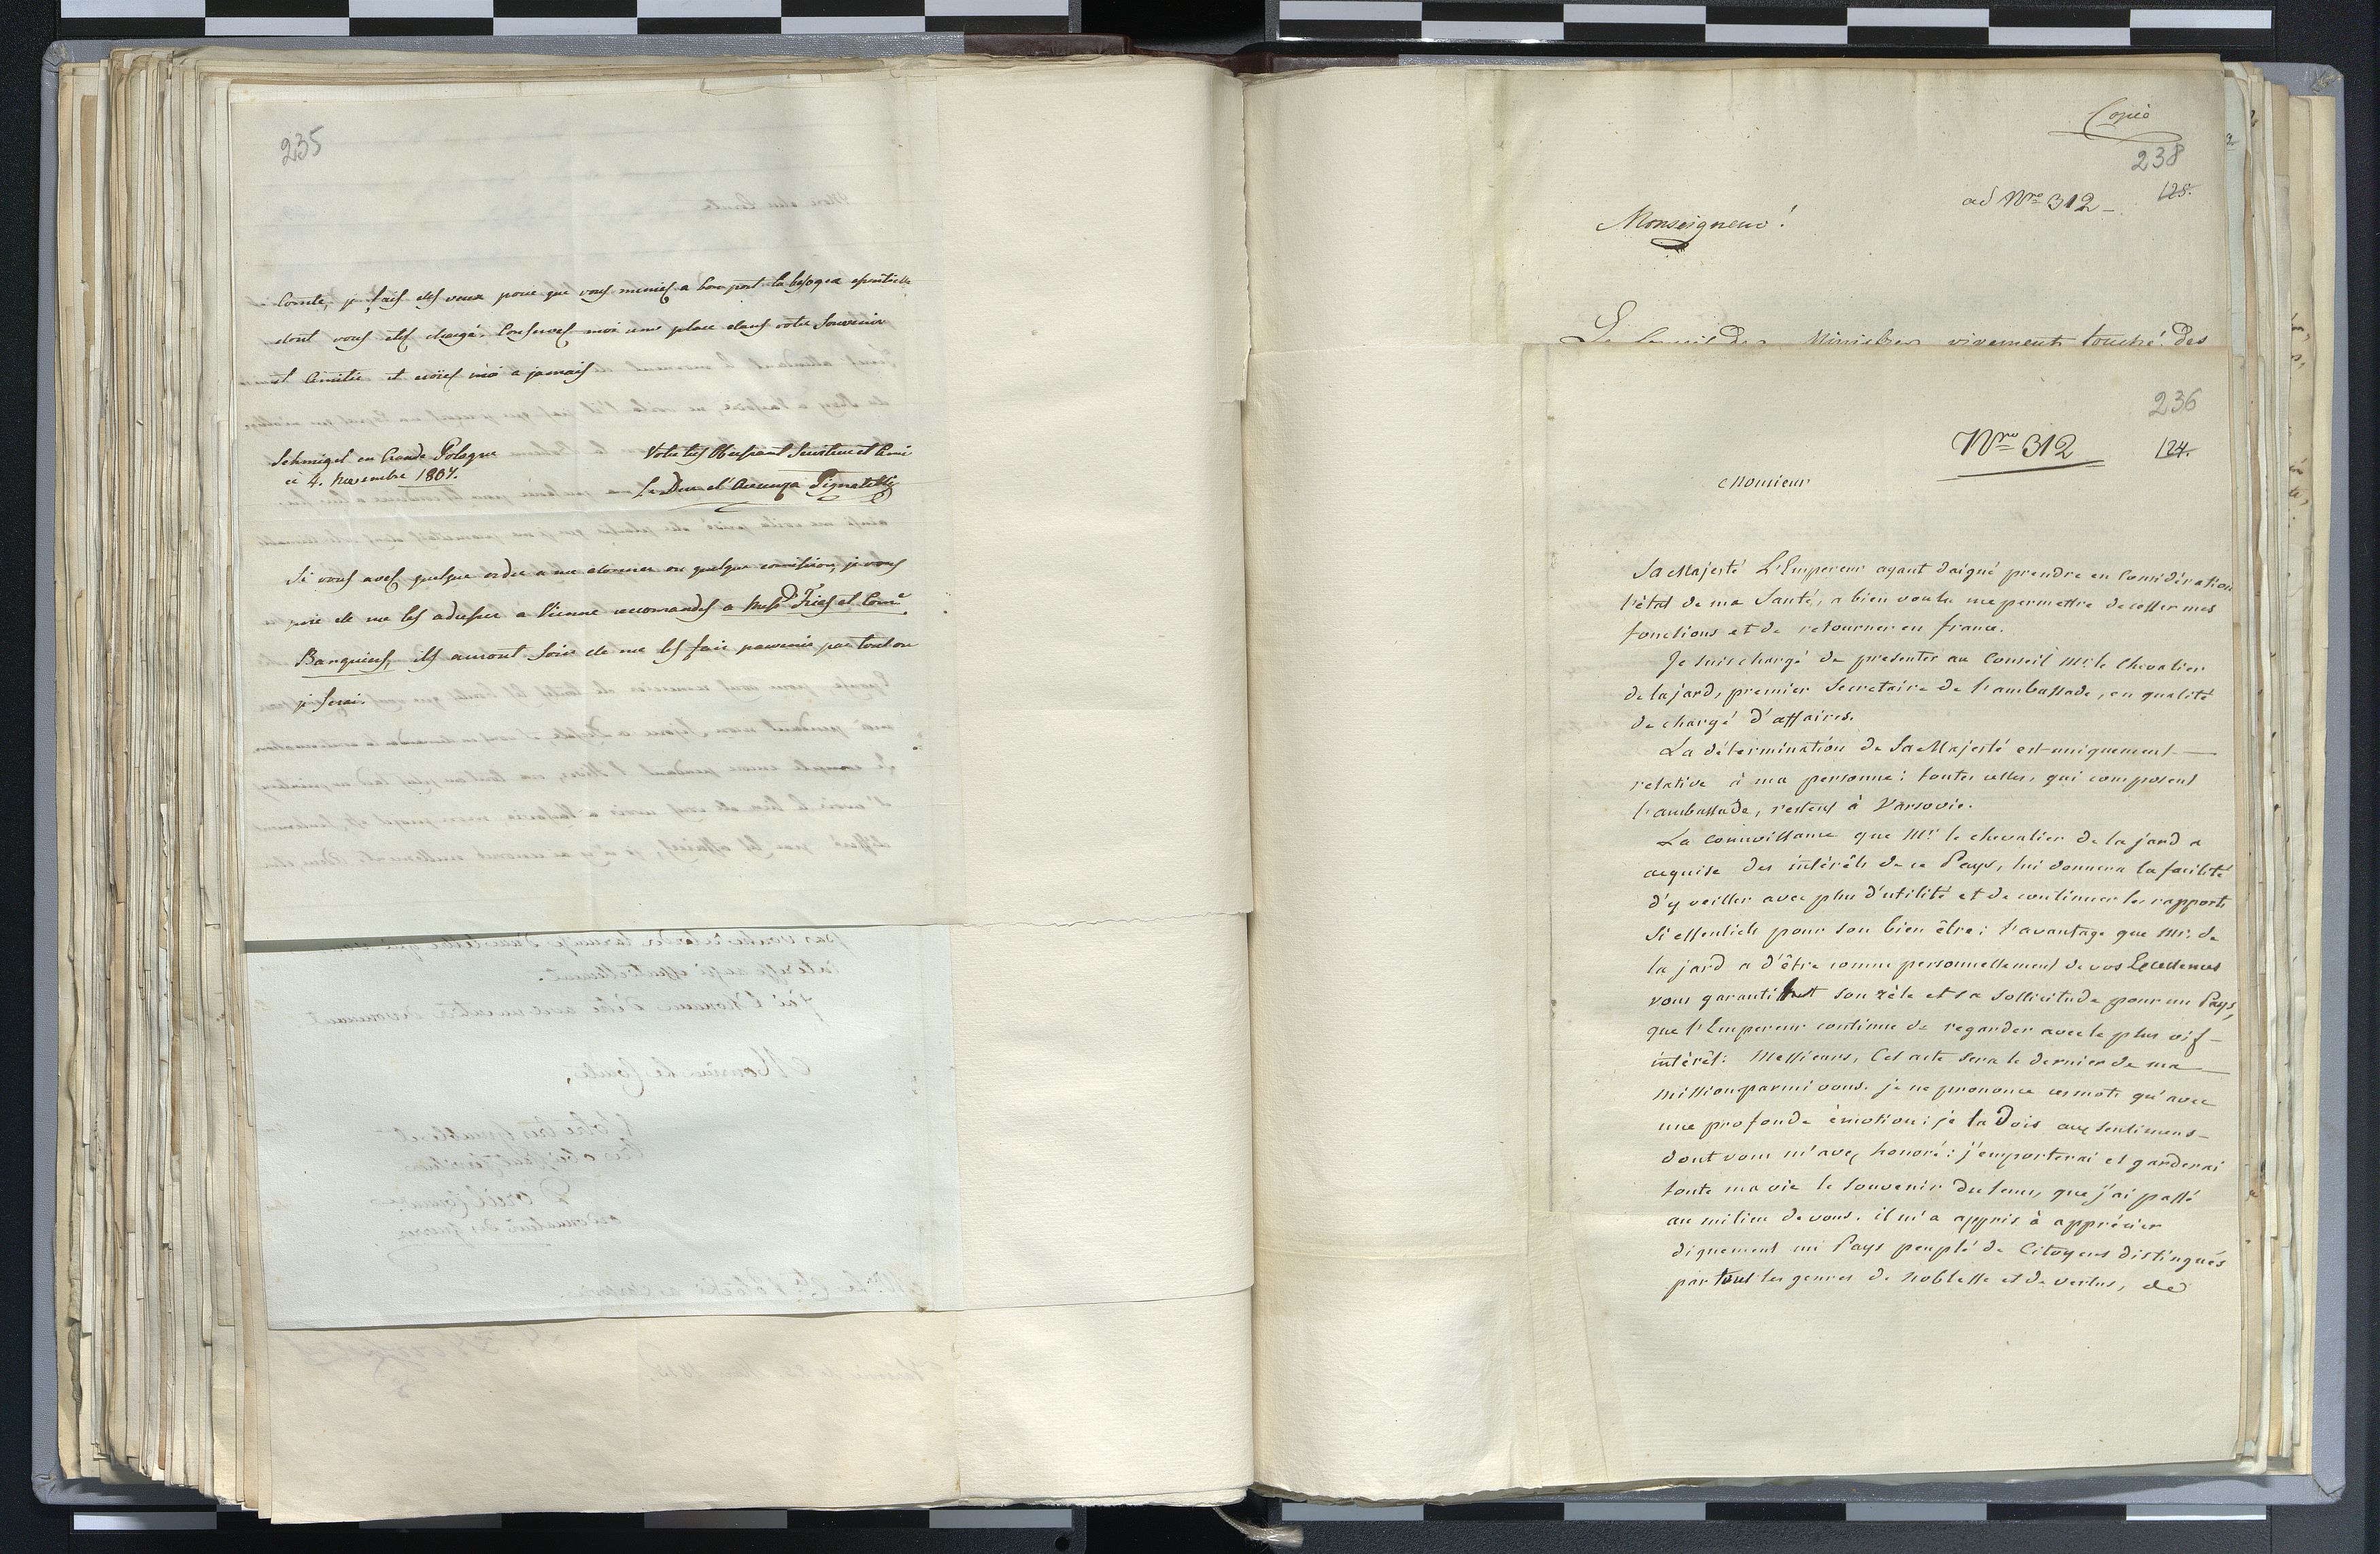 235
Comte, je fais des veux pour que vous meniez a bon port la besogne essentielle
dont vous etes chargé. Conservez moi une place dans votre Souvenir
et Amitié et croiés moi a jamais
Schmigel en Grande Pologne
ce 4. Novembre 1807.
Votre tres Obeissant Serviteur et Ami
Le Duc d'Accerenza Pignatelli
Si vous avez quelque ordre a me donner ou quelque comission, je vous
prie de me les adresser a Vienne recomandés a Mess.rs Fries et Com.e
Banquiers, ils auront soin de me les faire parvenir par tout ou
je serai.
Copie
238
ad Nro 312
125.
Monseigneur!
Le Conseil des Ministres vivement touché des
236
Nro 312
124.
Monsieur
Sa Majesté L'Empereur ayant daigné prendre en Considération
l'état de ma Santé, a bien voulu me permettre de cesser mes
fonctions et de retourner en france.
Je suis chargé de presenter au Conseil Mr. le Chevalier
de la jard, premier Secretaire de l'ambassade, en qualité
de chargé d'affaires.
La détermination de Sa Majesté est uniquement
relative à ma personne: toutes celles, qui composent
l'ambassade, restent à Varsovie.
La connoissance que Mr. le chevalier de la jard a
acquise des intérêts de ce Pays, lui donnera la facilité
d'y veiller avec plus d'utilité et de continuer les rapports
si essentiels pour son bien être: l'avantage que Mr. de
la jard a d'être connu personnellement de vos Excellences
vous garantissent son zèle et sa sollicitude pour un Pays,
que l'Empereur continue de regarder avec le plus vif
intérêt: Messieurs, Cet acte sera le dernier de ma
mission parmi vous. je ne prononce ces mots qu'avec
une profonde émotion: je la dois aux sentimens
dont vous m'avez honoré: j'emporterai et garderai
toute ma vie le souvenir du tems, que j'ai passé
au milieu de vous. il m'a appris à apprécier
dignement un Pays peuplé de Citoyens distingués
par tous les genres de noblesse et de vertus, de